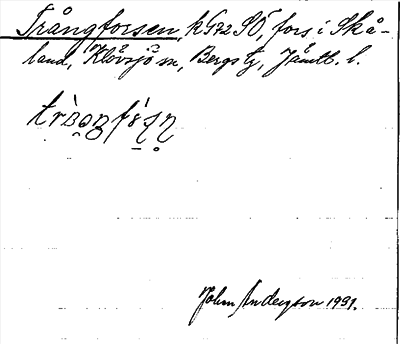 Trångforsen, kG72SÖ, fors i Skå-
land, Klövsjö sn, Bergs tg, Jämtl. l.
John Anderzon 1931.